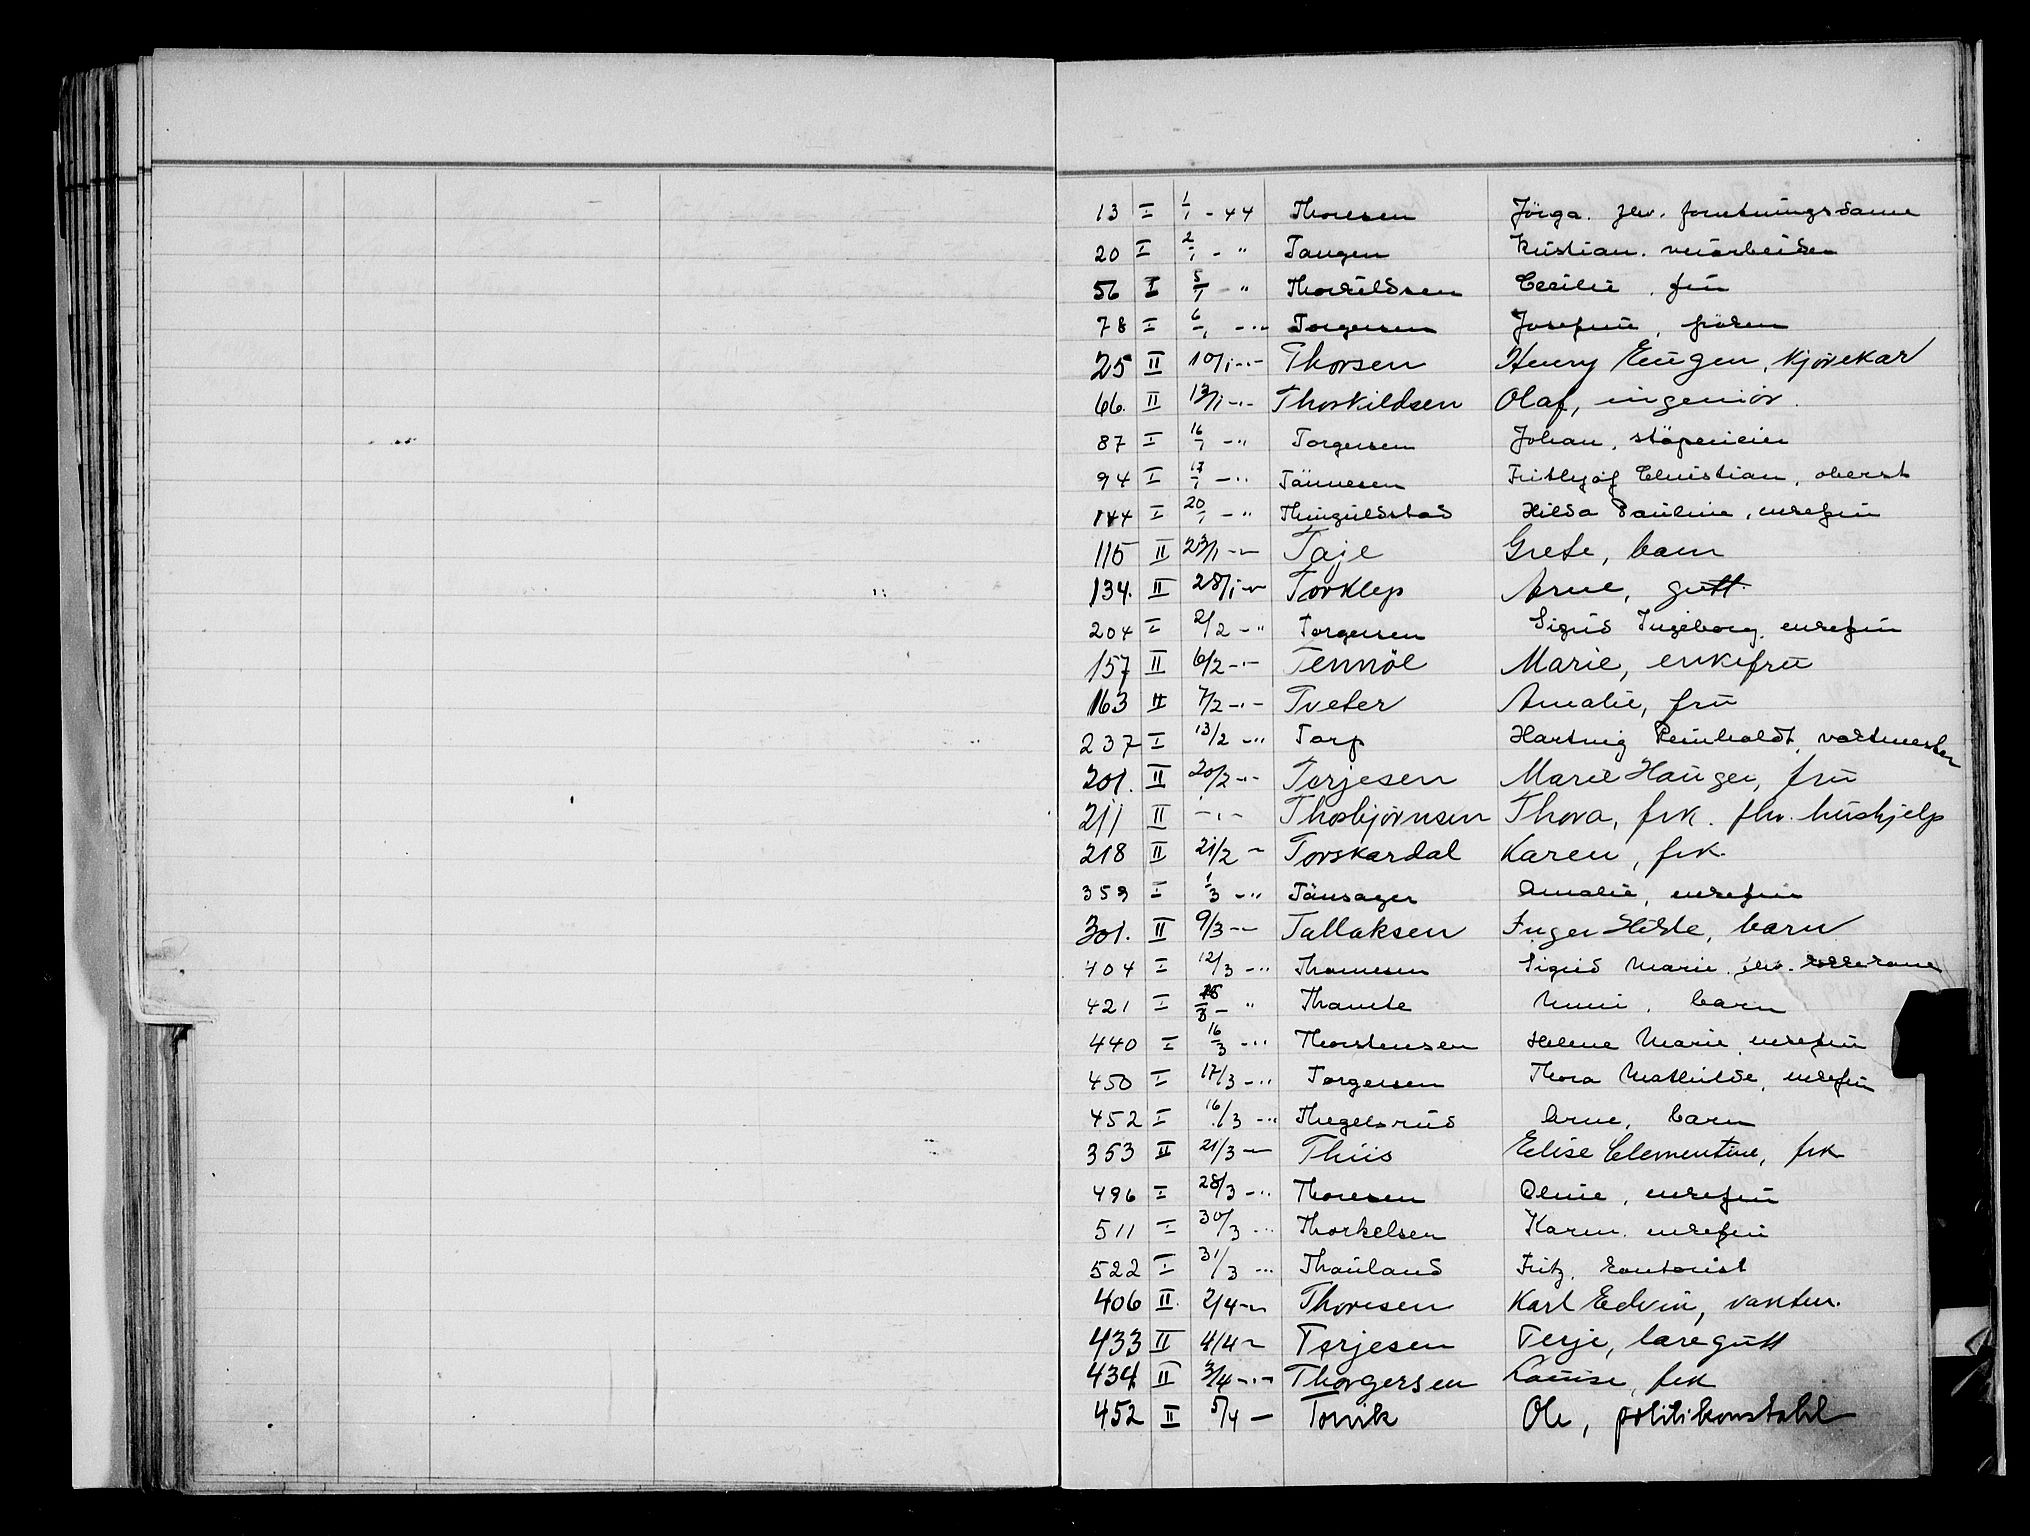 13 I 1/1 - 44 Thoresen Jörga. fhv. forretningsdame
20 I 2/1 - " Tangen Kristian.
56 I 5/1 - " Thorkildsen Cecilie, frü
78 I 6/1 - " Torgersen Josefine, fröken
25 II 10/1 - " - Thorsen Henry Eügen, kjørekar
66. II 13/1 - " - Thorkildsen Olaf, ingeniör.
87 I 16/1 - " Torgersen Johan, stöperieier
94 I 17/1 - " Tönnesen Frithjof Christian, oberst
144 I 20/1 - " Thingüldstad Hilda Paüline, enkefrü
115 II 23/1 - " Taje Grete, barn
134. II 28/1 - " Torklep Arne, gütt.
204 I 2/2 - " Torgersen Sigrid Ingeborg, enkefrü
157 II 6/2 - " - Tennöe Marie, enkefrü
163 II 7/2 - " - Tveter Amalie, frü
237 I 13/2 - " Torp Hartvig Reinholdt, vaktmester
201. II 20/2 - " - Terjesen Marie Haüger, frü
211 II - " - Thorbjørnsen Thora, frk. fhv. hüshjelp
218 II 21/2 - Torskardal Karen, frk.
359 I 1/3 - " Tönsager Amalie, enkefrü
301. II 9/3 - " Tallaksen Inger Hilde, barn
404 I 12/3 - " Thomesen Sigrid Marie. fhv. kokkekone
421 I - " barn
440 I 16/3 - " Thorstensen Helene Marie, enkefrü
450 I 17/3 - " Torgersen Thora Mathilde, enkefrü
452 I 16/3 - " Thegelsrüd Arne, barn
353 II 21/3 - Thiis Elise Clementine, frk
496 I 28/3 - " Thoresen Oline, enkefrü
511 I 30/3 - " Thorkelsen Karen. enkefrü
522 I 31/3 - " Thaüland Fritz. kontorist
406 II. 2/4 - " Thoresen Karl Edvin, vaktm.
433 II 4/4 - Terjesen Terje, læregütt
434 II 3/4 - " - Thorgersen Loüise, frk
452 II 5/4 - Torvik Ole, politikonstabel